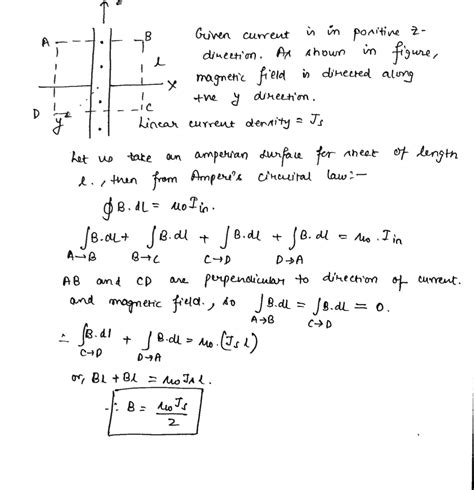 z
A
B
l
x
D
C
y
Given current is in positive z-
direction. As shown in figure,
magnetic field is directed along
+ve y direction.
Linear current density = Js
Let us take an amperian surface for sheet of length
l., then from Ampere's circuital law:-
∮B.dL = μ0 Iin.
∫B.dl + ∫B.dl + ∫B.dl + ∫B.dl = μ0 . Iin
A→B B→C C→D D→A
AB and CD are perpendicular to direction of current.
and magnetic field., so ∫B.dl = ∫B.dl = 0.
A→B C→D
∴ ∫B.dl + ∫B.dl = μ0. (Js l)
C→D D→A
or, Bl + Bl = μ0 Js l.
∴ B = μ0 Js / 2